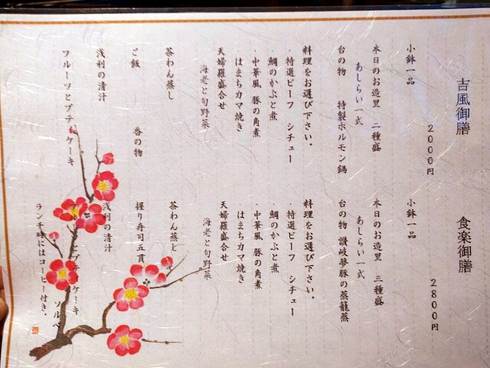 吉風御膳
2000円
小鉢一品
本日のお造里 二種盛
あしらい一式
台の物 特製ホルモン鍋
料理をお選び下さい。
・特選ビーフ シチュー
・鯛のかぶと煮
・中華風 豚の角煮
・はまちカマ焼き
天婦羅盛合せ
海老と旬野菜
茶わん蒸し
ご飯 香の物
浅利の清汁
フルーツとプチケーキ
食楽御膳
2800円
小鉢一品
本日のお造里 三種盛
あしらい一式
台の物 讃岐夢豚の蒸籠蒸
料理をお選び下さい。
・特選ビーフ シチュー
・鯛のかぶと煮
・中華風 豚の角煮
・はまちカマ焼き
天婦羅盛合せ
海老と旬野菜
茶わん蒸し
握り寿司五貫
浅利の清汁
プチケーキ ソルベ
ランチ時にはコーヒー付き。